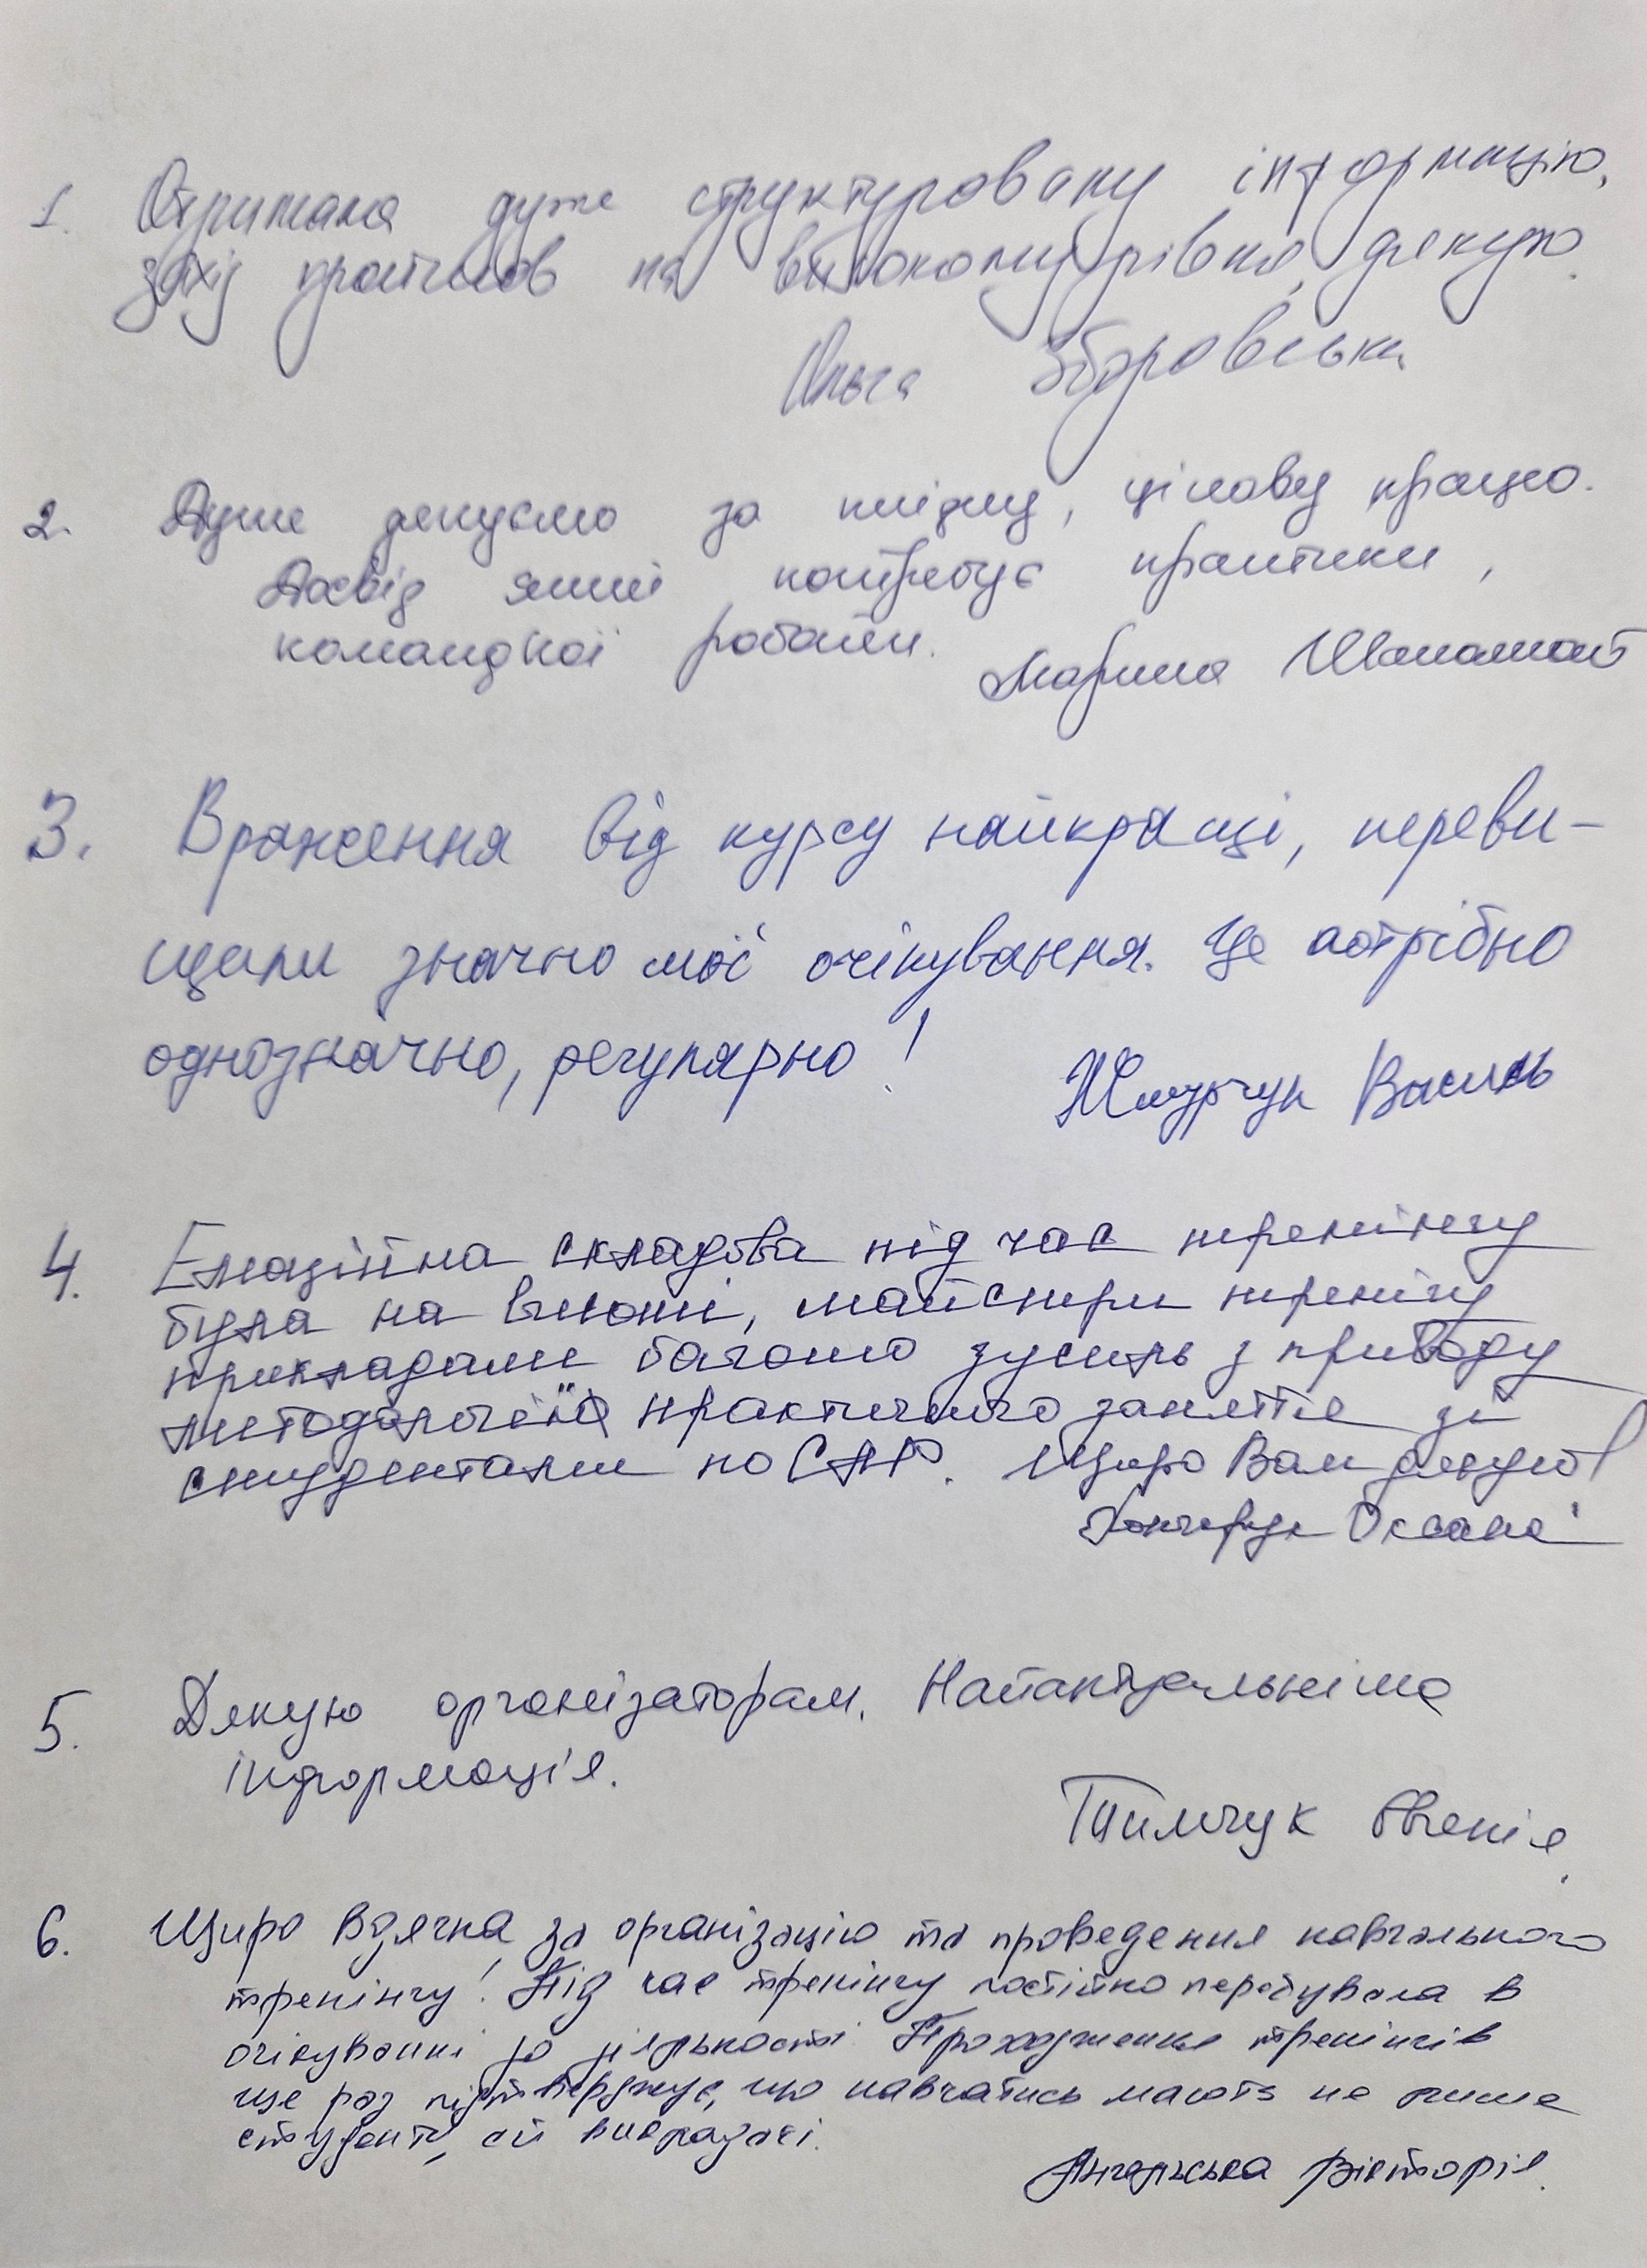 1. Отримала дуже структуровану інформацію,
захід пройшов на високому рівні, дякую.
Ольга Зборовська
2. Дуже дякуємо за плідну, цікаву працю.
Досвід який потребує практики,
командної роботи. Марина
3. Враження від курсу найкращі, переви-
щили значно мої очікування. Це потрібно
однозначно, регулярно! Василь
4. Емоційна складова під час тренінгу
була на висоті, майстри тренінгу
прикладали багато зусиль з приводу
методології практичного заняття зі
студентами по САР. Щиро Вам дякую!
Оксана
5. Дякую організаторам. Найактуальніша
інформація.
Тимчук Євгенія.
6. Щиро вдячна за організацію та проведення навчального
тренінгу! Під час тренінгу постійно перебувала в
очікуванні до діяльності. Проходження тренінгів
ще раз підтверджує, що навчатись мають не лише
студенти, а й викладачі.
Ангельська Вікторія.